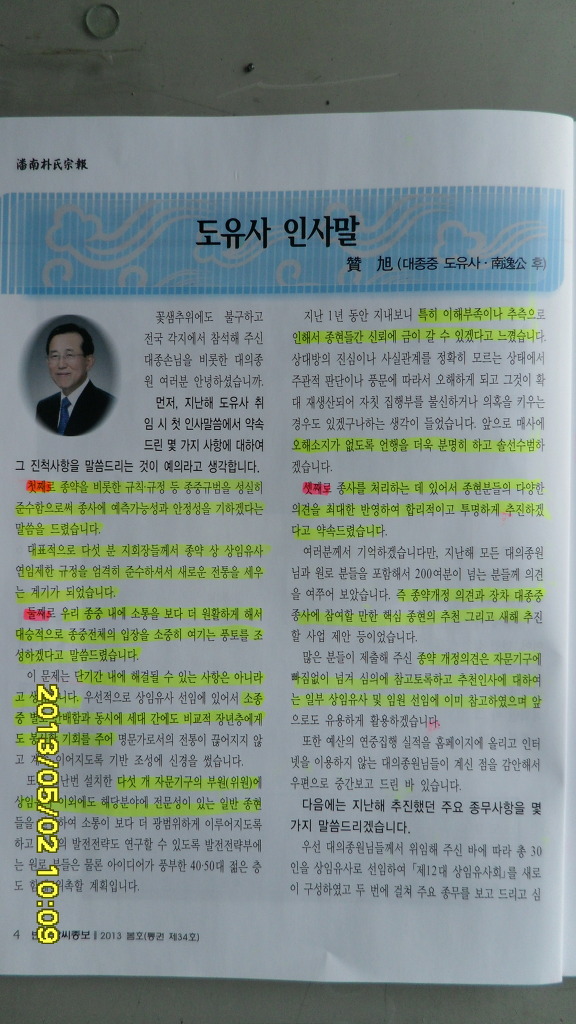 潘南朴氏宗報
도유사 인사말
贊 旭 (대종중 도유사·南逸公 後)
꽃샘추위에도 불구하고
전국 각지에서 참석해 주신
대종손님을 비롯한 대의종
원 여러분 안녕하셨습니까.
먼저, 지난해 도유사 취
임 시 첫 인사말씀에서 약속
드린 몇 가지 사항에 대하여
그 진척사항을 말씀드리는 것이 예의라고 생각합니다.
첫째로 종약을 비롯한 규칙·규정 등 종중규범을 성실히
준수함으로써 종사에 예측가능성과 안정성을 기하겠다는
말씀을 드렸습니다.
대표적으로 다섯 분 지회장들께서 종약 상 상임유사
연임제한 규정을 엄격히 준수하셔서 새로운 전통을 세우
는 계기가 되었습니다.
둘째로 우리 종중 내에 소통을 보다 더 원활하게 해서
대승적으로 종중전체의 입장을 소중히 여기는 풍토를 조
성하겠다고 말씀드렸습니다.
이 문제는 단기간 내에 해결될 수 있는 사항은 아니라
고 우선적으로 상임유사 선임에 있어서 소종
중 동시에 세대 간에도 비교적 장년층에게
도 기회를 주어 명문가로서의 전통이 끊어지지 않
고 기반 조성에 신경을 썼습니다.
난번 설치한 다섯 개 자문기구의 부원(위원)에
상임유 이외에도 해당분야에 전문성이 있는 일반 종현
들을 하여 소통이 보다 더 광범위하게 이루어지도록
하고 발전전략도 연구할 수 있도록 발전전략부에
는 원로 분들은 물론 아이디어가 풍부한 40·50대 젊은 층
도 위촉할 계획입니다.
지난 1년 동안 지내보니 특히 이해부족이나 추측으로
인해서 종현들간 신뢰에 금이 갈 수 있겠다고 느꼈습니다.
상대방의 진심이나 사실관계를 정확히 모르는 상태에서
주관적 판단이나 풍문에 따라서 오해하게 되고 그것이 확
대 재생산되어 자칫 집행부를 불신하거나 의혹을 키우는
경우도 있겠구나하는 생각이 들었습니다. 앞으로 매사에
오해소지가 없도록 언행을 더욱 분명히 하고 솔선수범하
겠습니다.
셋째로 종사를 처리하는 데 있어서 종현분들의 다양한
의견을 최대한 반영하여 합리적이고 투명하게 추진하겠
다고 약속드렸습니다.
여러분께서 기억하겠습니다만, 지난해 모든 대의종원
님과 원로 분들을 포함해서 200여분이 넘는 분들께 의견
을 여쭈어 보았습니다. 즉 종약개정 의견과 장차 대종중
종사에 참여할 만한 핵심 종현의 추천 그리고 새해 추진
할 사업 제안 등이었습니다.
많은 분들이 제출해 주신 종약 개정의견은 자문기구에
빠짐없이 넘겨 심의에 참고토록하고 추천인사에 대하여
는 일부 상임유사 및 임원 선임에 이미 참고하였으며 앞
으로도 유용하게 활용하겠습니다.
또한 예산의 연중집행 실적을 홈페이지에 올리고 인터
넷을 이용하지 않는 대의종원님들이 계신 점을 감안해서
우편으로 중간보고 드린 바 있습니다.
다음에는 지난해 추진했던 주요 종무사항을 몇
가지 말씀드리겠습니다.
우선 대의종원님들께서 위임해 주신 바에 따라 총 30
인을 상임유사로 선임하여 「제12대 상임유사회」를 새로
이 구성하였고 두 번에 걸쳐 주요 종무를 보고 드리고 심
4 씨종보 ‖ 2013 봄호(통권 제34호)
2013/05/02 10:09